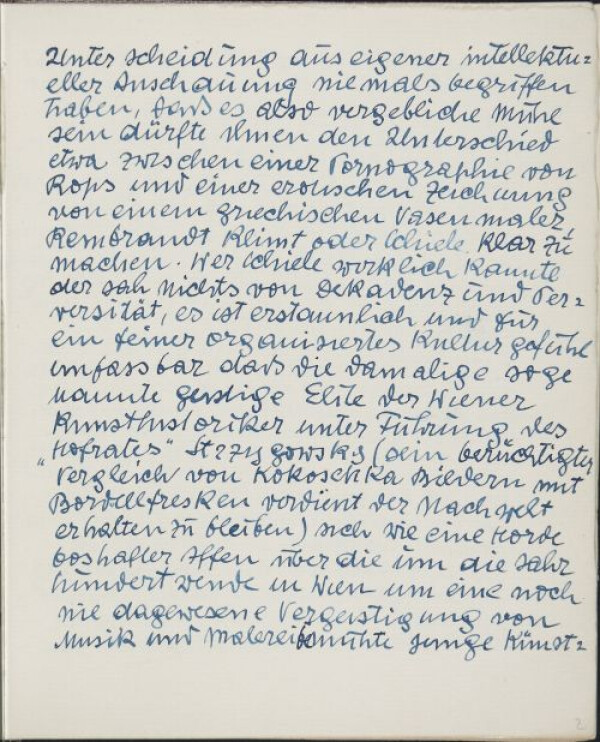 Unterscheidung aus eigener intellektu=
eller Anschauung niemals begriffen
haben, dass es also vergebliche Mühe
sein dürfte ihnen den Unterschied
etwa zwischen einer Pornographie von
Rops und einer erotischen Zeichnung
von einem griechischen Vasenmaler,
Rembrandt Klimt oder Schiele klar zu
machen. Wer Schiele wirklich kannte
der sah nichts von Dekadenz und Per=
versität, es ist erstaunlich und für
ein feiner organisiertes Kulturgefühl
unfassbar dass die damalige soge
nannte geistige Elite der Wiener
Kunsthistoriker unter Führung des
"Hofrates" Strzygowsky (sein berüchtigter
Vergleich von Kokoschka Bildern mit
Bordellfresken verdient der Nachwelt
erhalten zu bleiben) sich wie eine Horde
boshafter Affen über die um die Jahr
hundertwende in Wien um eine noch
nie dagewesene Vergeistigung von
Musik und Malerei bemühte junge Künst=
2